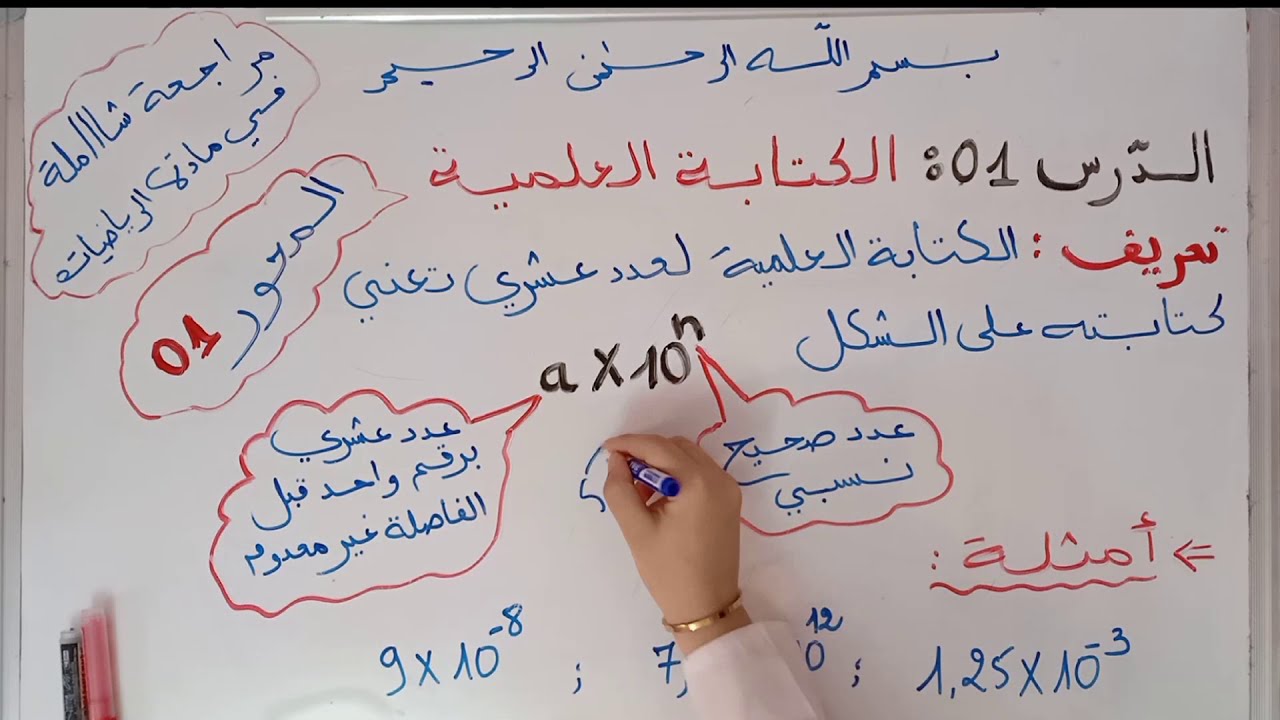 بسم اللّه الرحمٰن الرحيم
مراجعة شاااملة
في مادة الرياضيات
المحور
01
الدّرس 01: الكتابة العلمية
تعريف: الكتابة العلمية لعدد عشري تعني
كتابته على الشكل
a X 10^n
عدد صحيح
نسبي
عدد عشري
برقم واحد قبل
الفاصلة غير معدوم
⇐ أمثلة:
1,25 X 10^-3 ; 7, 0^12 ; 9 X 10^-8